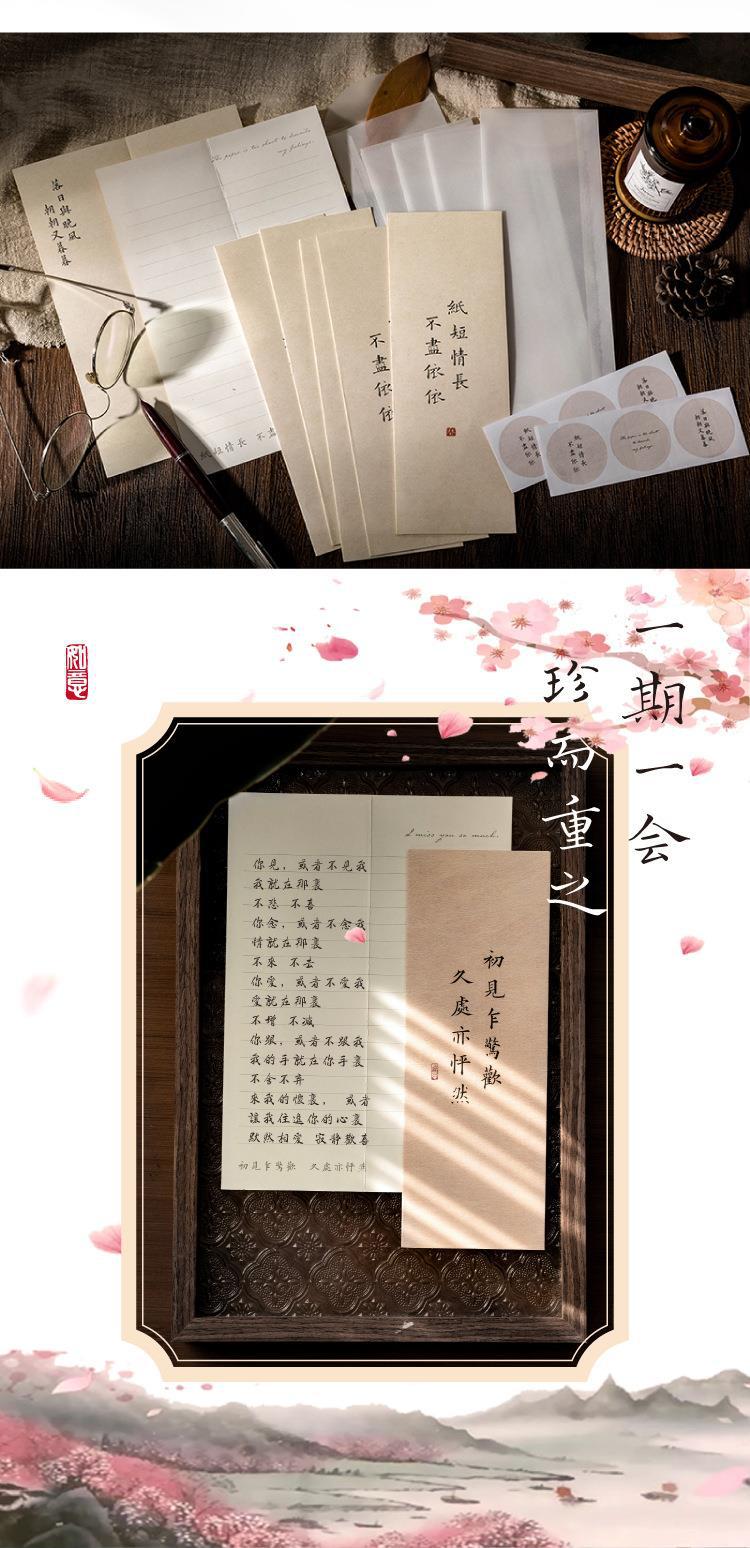 The paper is too short to describe
my feelings.
落日與晚風
朝朝又暮暮
紙短情長
不盡依依
不盡依依
紙短情長 不盡
落日與晚風
朝朝又暮暮
紙短情長
不盡依依
The paper is too short
to describe
my feelings.
落日與晚風
朝朝又暮暮
如意
一期一会
珍而重之
I miss you so much.
你見，或者不見我
我就在那裏
不悲 不喜
你念，或者不念我
情就在那裏
不來 不去
你愛，或者不愛我
愛就在那裏
不增 不減
你跟，或者不跟我
我的手就在你手裏
不舍不弃
來我的懷裏， 或者
讓我住進你的心裏
默然相愛 寂静歡喜
初見乍驚歡 久處亦怦然
初見乍驚歡
久處亦怦然